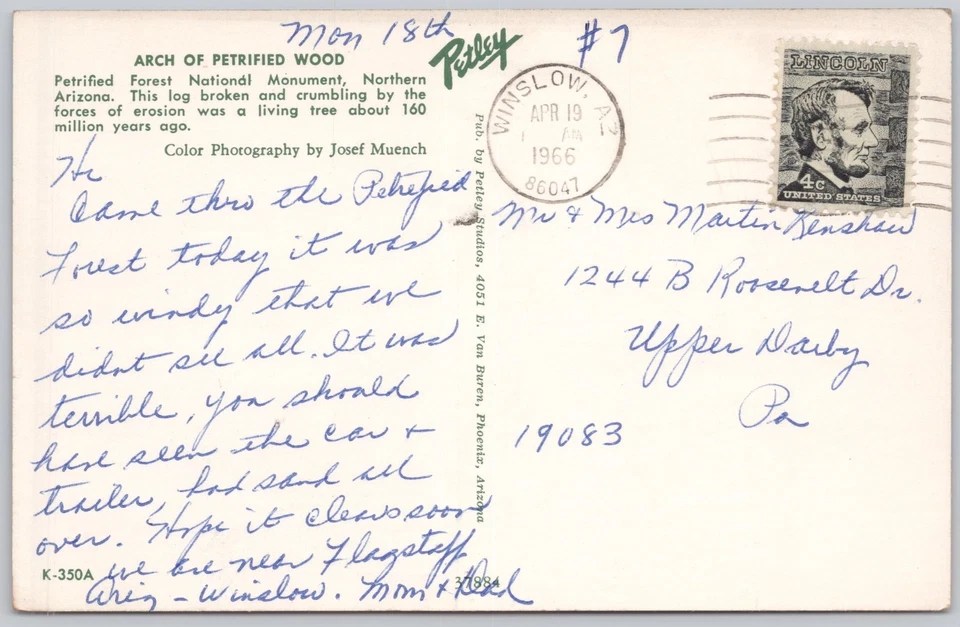 Mon 18th
#7
ARCH OF PETRIFIED WOOD
Petrified Forest National Monument, Northern
Arizona. This log broken and crumbling by the
forces of erosion was a living tree about 160
million years ago.
Color Photography by Josef Muench
Petley
WINSLOW, AZ
APR 19
AM
1966
86047
LINCOLN
4c
UNITED STATES
Hi
Came thro the Petrefied
Forest today it was
so windy that we
didnt see all. It was
terrible, you should
have seen the car +
trailer, had sand all
over. Hope it clears soon
we are near Flagstaff
Ariz - Winslow. Mom + Dad
K-350A
37884
Pub. by Petley Studios, 4051 E. Van Buren, Phoenix, Arizona
Mr & Mrs Martin Renshaw
1244 B Roosevelt Dr.
Upper Darby
Pa
19083